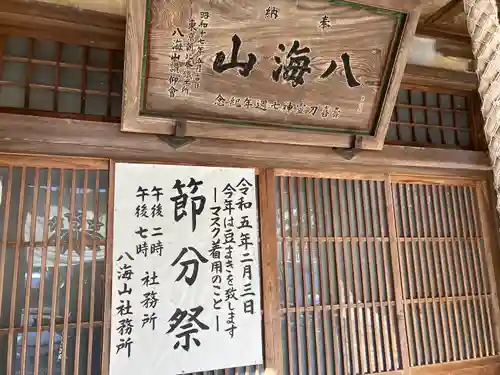 奉納
八海山
昭和十七年五月
八海山講仰會
令和五年二月三日
今年は豆まきを致します
―マスク着用のこと―
節分祭
午後二時 社務所
午後七時
八海山社務所